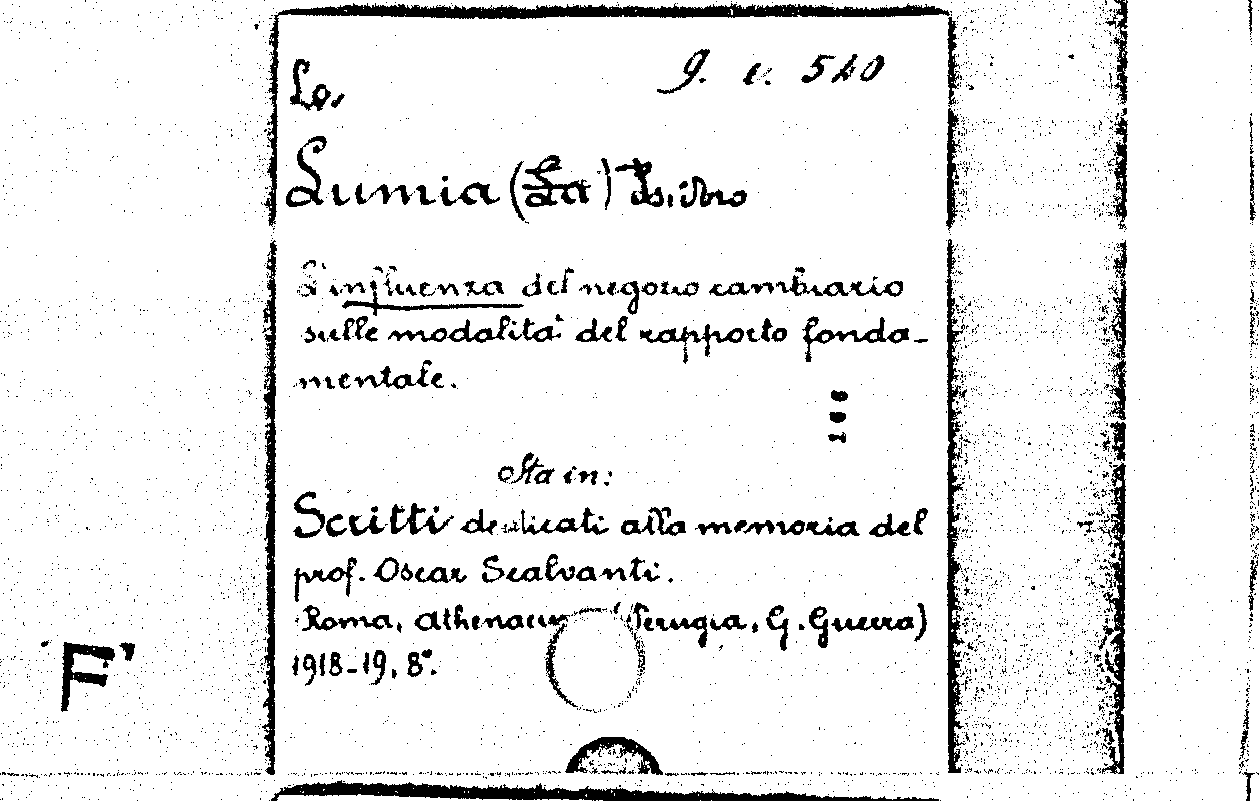 Lo,
g. e. 540
Lumia (La) Isidoro
L'influenza del negozio cambiario
sulle modalità del rapporto fonda-
mentale.
Sta in:
Scritti dedicati alla memoria del
prof. Oscar Scalvanti.
Roma, Athenaeum (Perugia, G. Guerra)
1918-19, 8°.
F